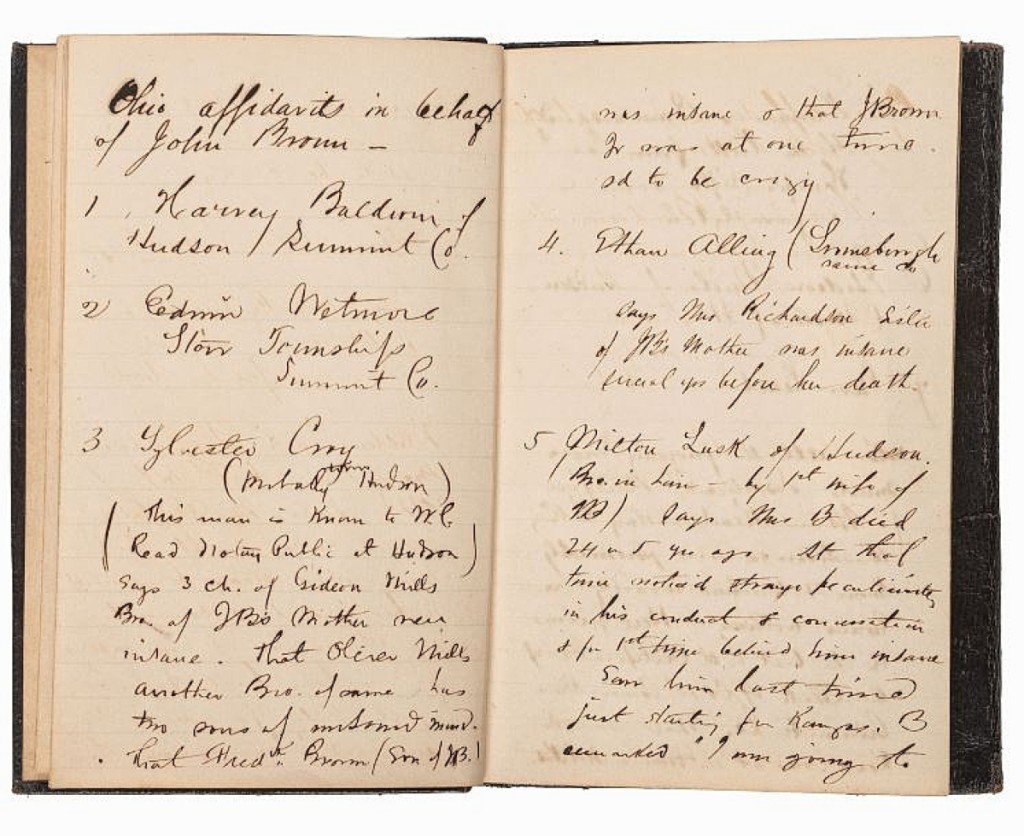 Ohio affidavits in behalf
of John Brown –
1 . Harvey Baldwin of
Hudson / Summit Co.
2 Edwin Wetmore
Stow Township
Summit Co.
3 Sylvester
( Hudson)
(This man is known to W.C.
Read Notary Public at Hudson)
says 3 ch. of Gideon Mills
Bro. of JB's Mother were
insane. That Oliver Mills
another Bro. of same has
two sons of unsound mind.
. That Fredk. Brown (Son of JB.)
was insane & that JBrown
Jr was at one time
sd to be crazy
4. Ethan Alling (
same Co
says Mrs Richardson Sister
of JB's Mother was insane
several yrs before her death.
5 Milton Lusk of Hudson.
(Bro. in law – by 1st wife of
JB) says Mrs B died
24 or 5 yrs ago. At that
time noticed strange peculiarities
in his conduct & conversation
& for 1st time believed him insane
Saw him last time
just starting for Kansas. B
remarked "I am going to